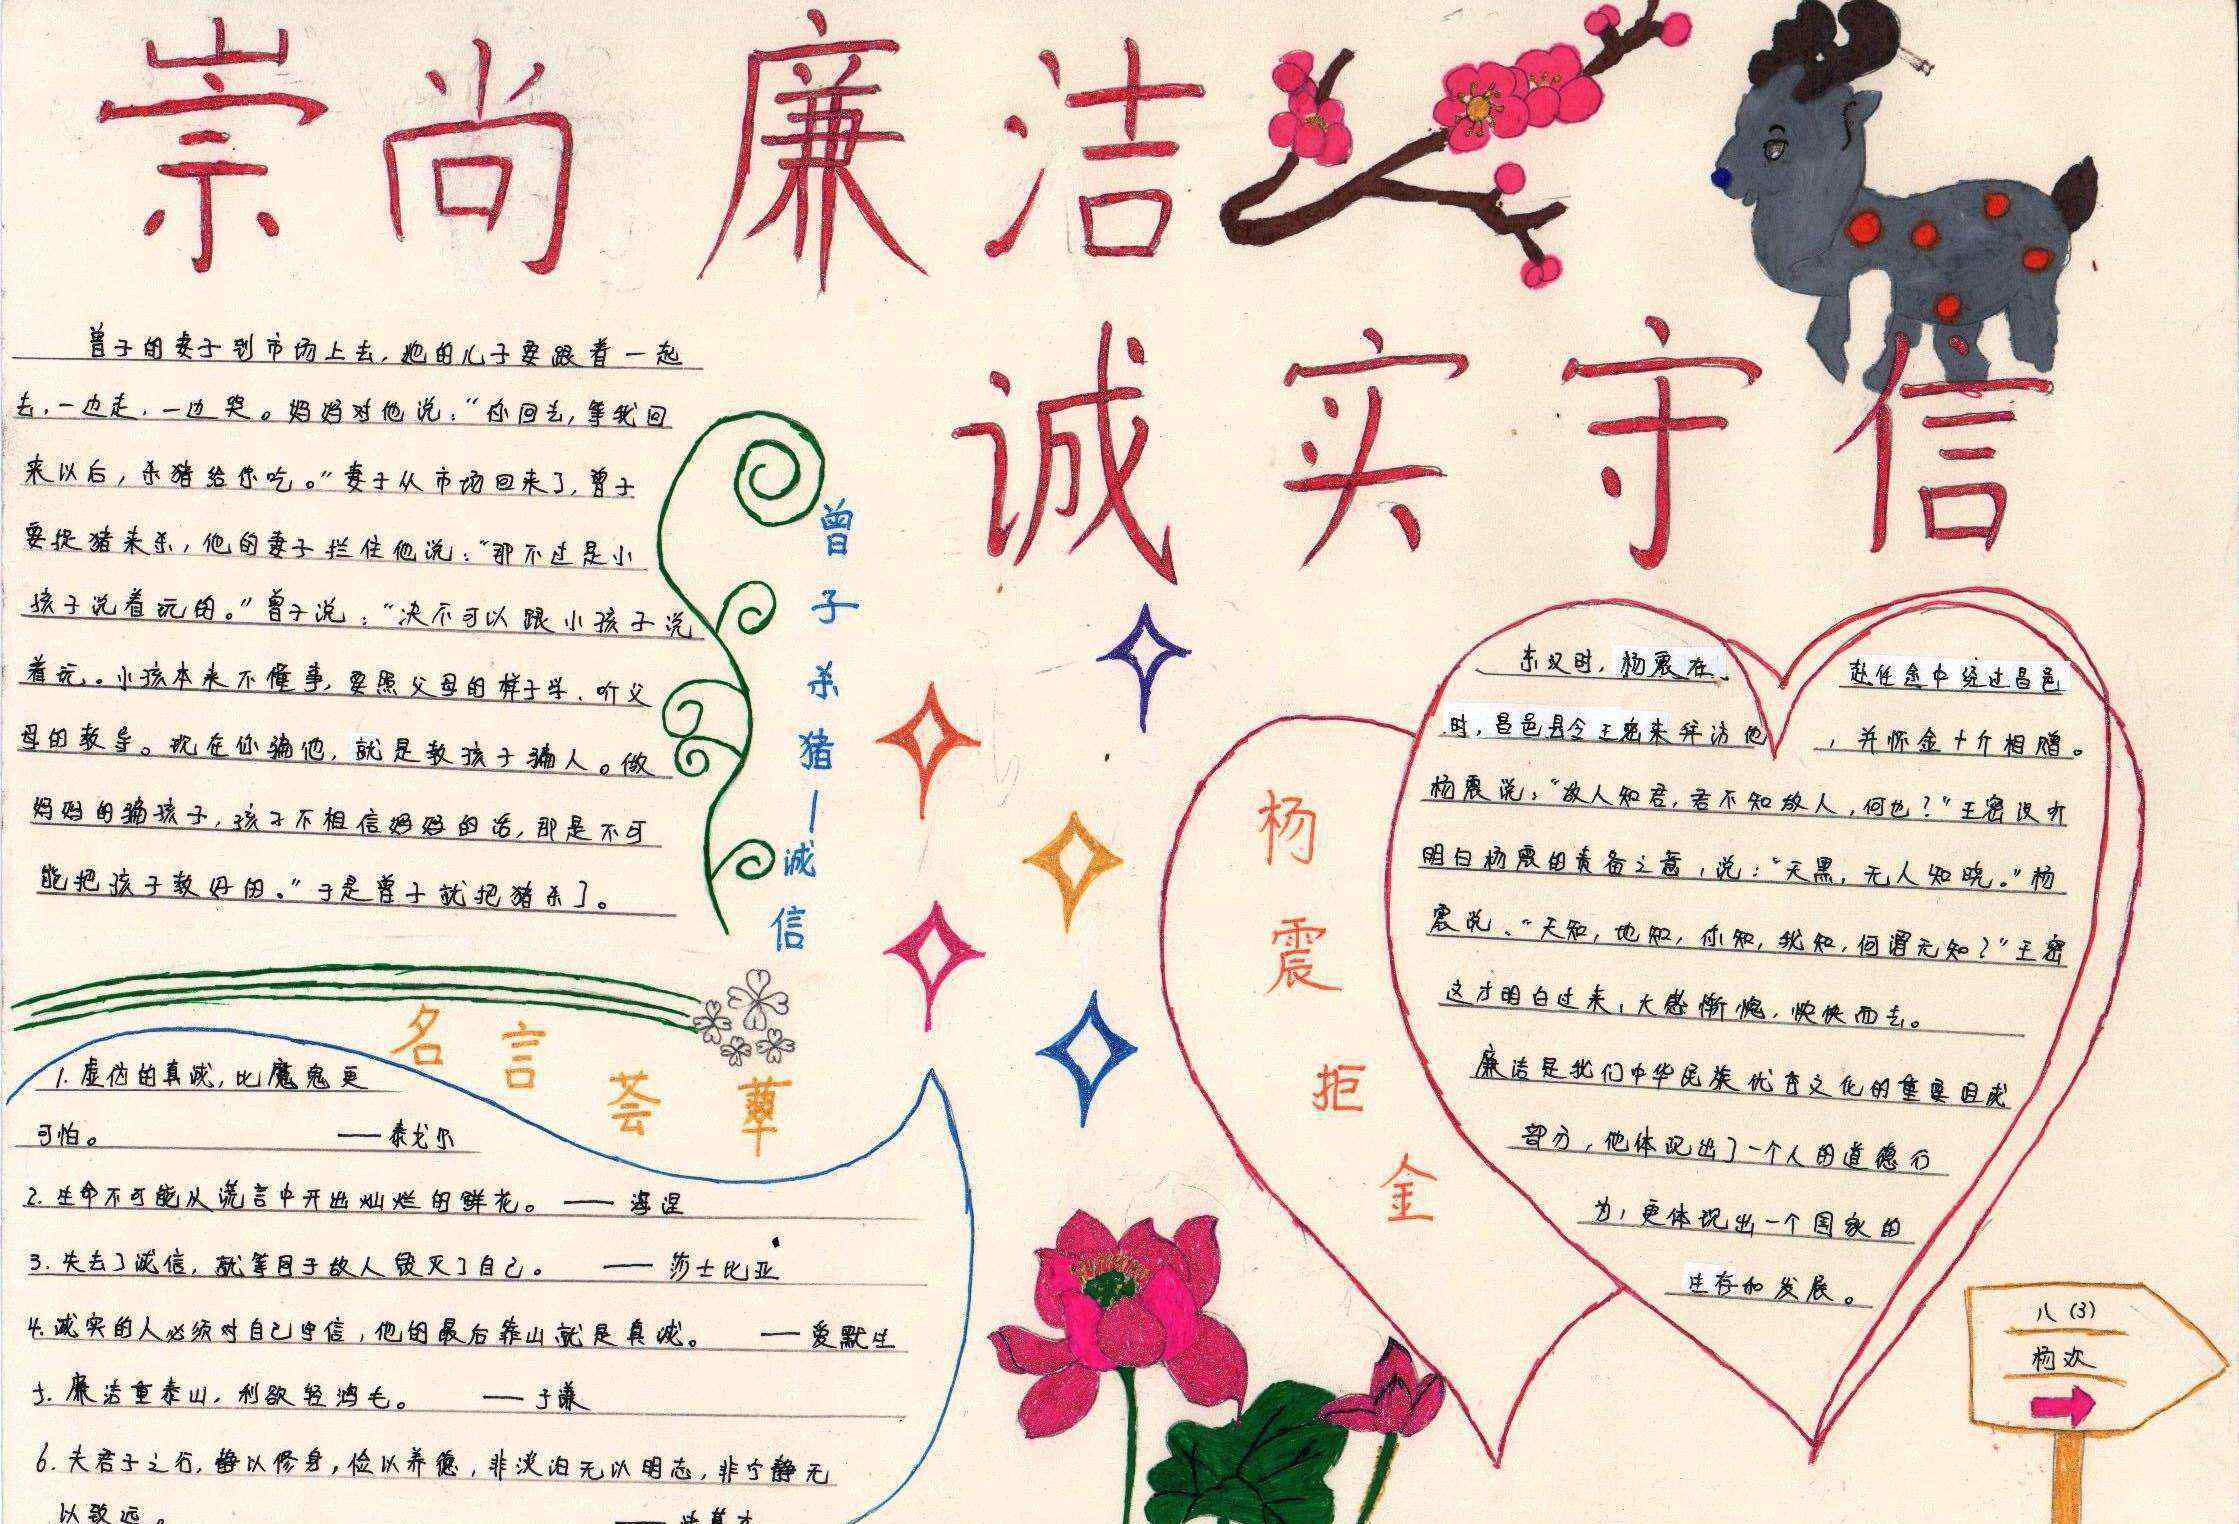 崇尚廉洁
诚实守信
曾子的妻子到市场上去,她的儿子要跟着一起
去,一边走,一边哭。妈妈对他说:“你回去,等我回
来以后,杀猪给你吃。”妻子从市场回来了,曾子
要捉猪来杀,他的妻子拦住他说:“那不过是小
孩子说着玩的。”曾子说:“决不可以跟小孩子说
着玩。小孩本来不懂事,要照父母的样子学,听父
母的教导。现在你骗他,就是教孩子骗人。做
妈妈的骗孩子,孩子不相信妈妈的话,那是不可
能把孩子教好的。”于是曾子就把猪杀了。
曾子杀猪—诚信
名言荟萃
1. 虚伪的真诚,比魔鬼更
可怕。 ——泰戈尔
2. 生命不可能从谎言中开出灿烂的鲜花。——海涅
3. 失去了诚信,就等同于敌人毁灭了自己。——莎士比亚
4. 诚实的人必须对自己守信,他的最后靠山就是真诚。——爱默生
5. 廉洁重泰山,利欲轻鸿毛。——于谦
6. 夫君子之行,静以修身,俭以养德,非淡泊无以明志,非宁静无
以致远。
杨震拒金
东汉时,杨震在赴任途中经过昌邑
时,昌邑县令王密来拜访他,并怀金十斤相赠。
杨震说:“故人知君,君不知故人,何也?”王密没听
明白杨震的责备之意,说:“天黑,无人知晓。”杨
震说:“天知,地知,你知,我知,何谓无知?”王密
这才明白过来,大感惭愧,怏怏而去。
廉洁是我们中华民族优秀文化的重要组成
部分,他体现出了一个人的道德行
为,更体现出一个国家的
生存和发展。
八(3)
杨欢